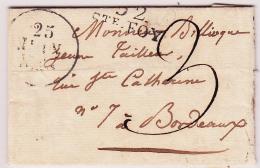 32
STE FOY
25
Monsieur
jeune Tailleur,
rue Ste Catherine
nº 7 à Bordeaux
3